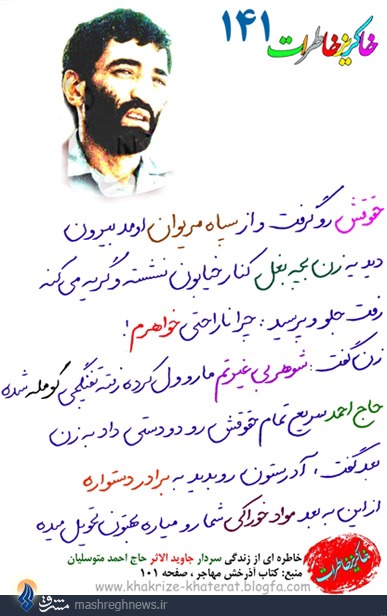 خاکریز خاطرات ۱۴۱
حقوقش رو گرفت و از سپاه مریوان اومد بیرون
دید یه زن بچه بغل کنار خیابون نشسته و گریه می کنه
رفت جلو و پرسید : چرا ناراحتی خواهرم ؟
زن گفت : شوهر بی غیرتم ما رو ول کرده رفته تفنگچی کومله شده
حاج احمد سریع تمام حقوقش رو دو دستی داد به زن
بعد گفت ، آدرستون رو بدید به برادر دستواره
از این به بعد مواد خوراکی شما رو میاره بهتون تحویل میده
خاطره ای از زندگی سردار جاوید الاثر حاج احمد متوسلیان
منبع: کتاب آذرخش مهاجر ، صفحه ۱۰۱
خاکریز خاطرات
www.khakrize-khaterat.blogfa.com
مشرق mashreghnews.ir